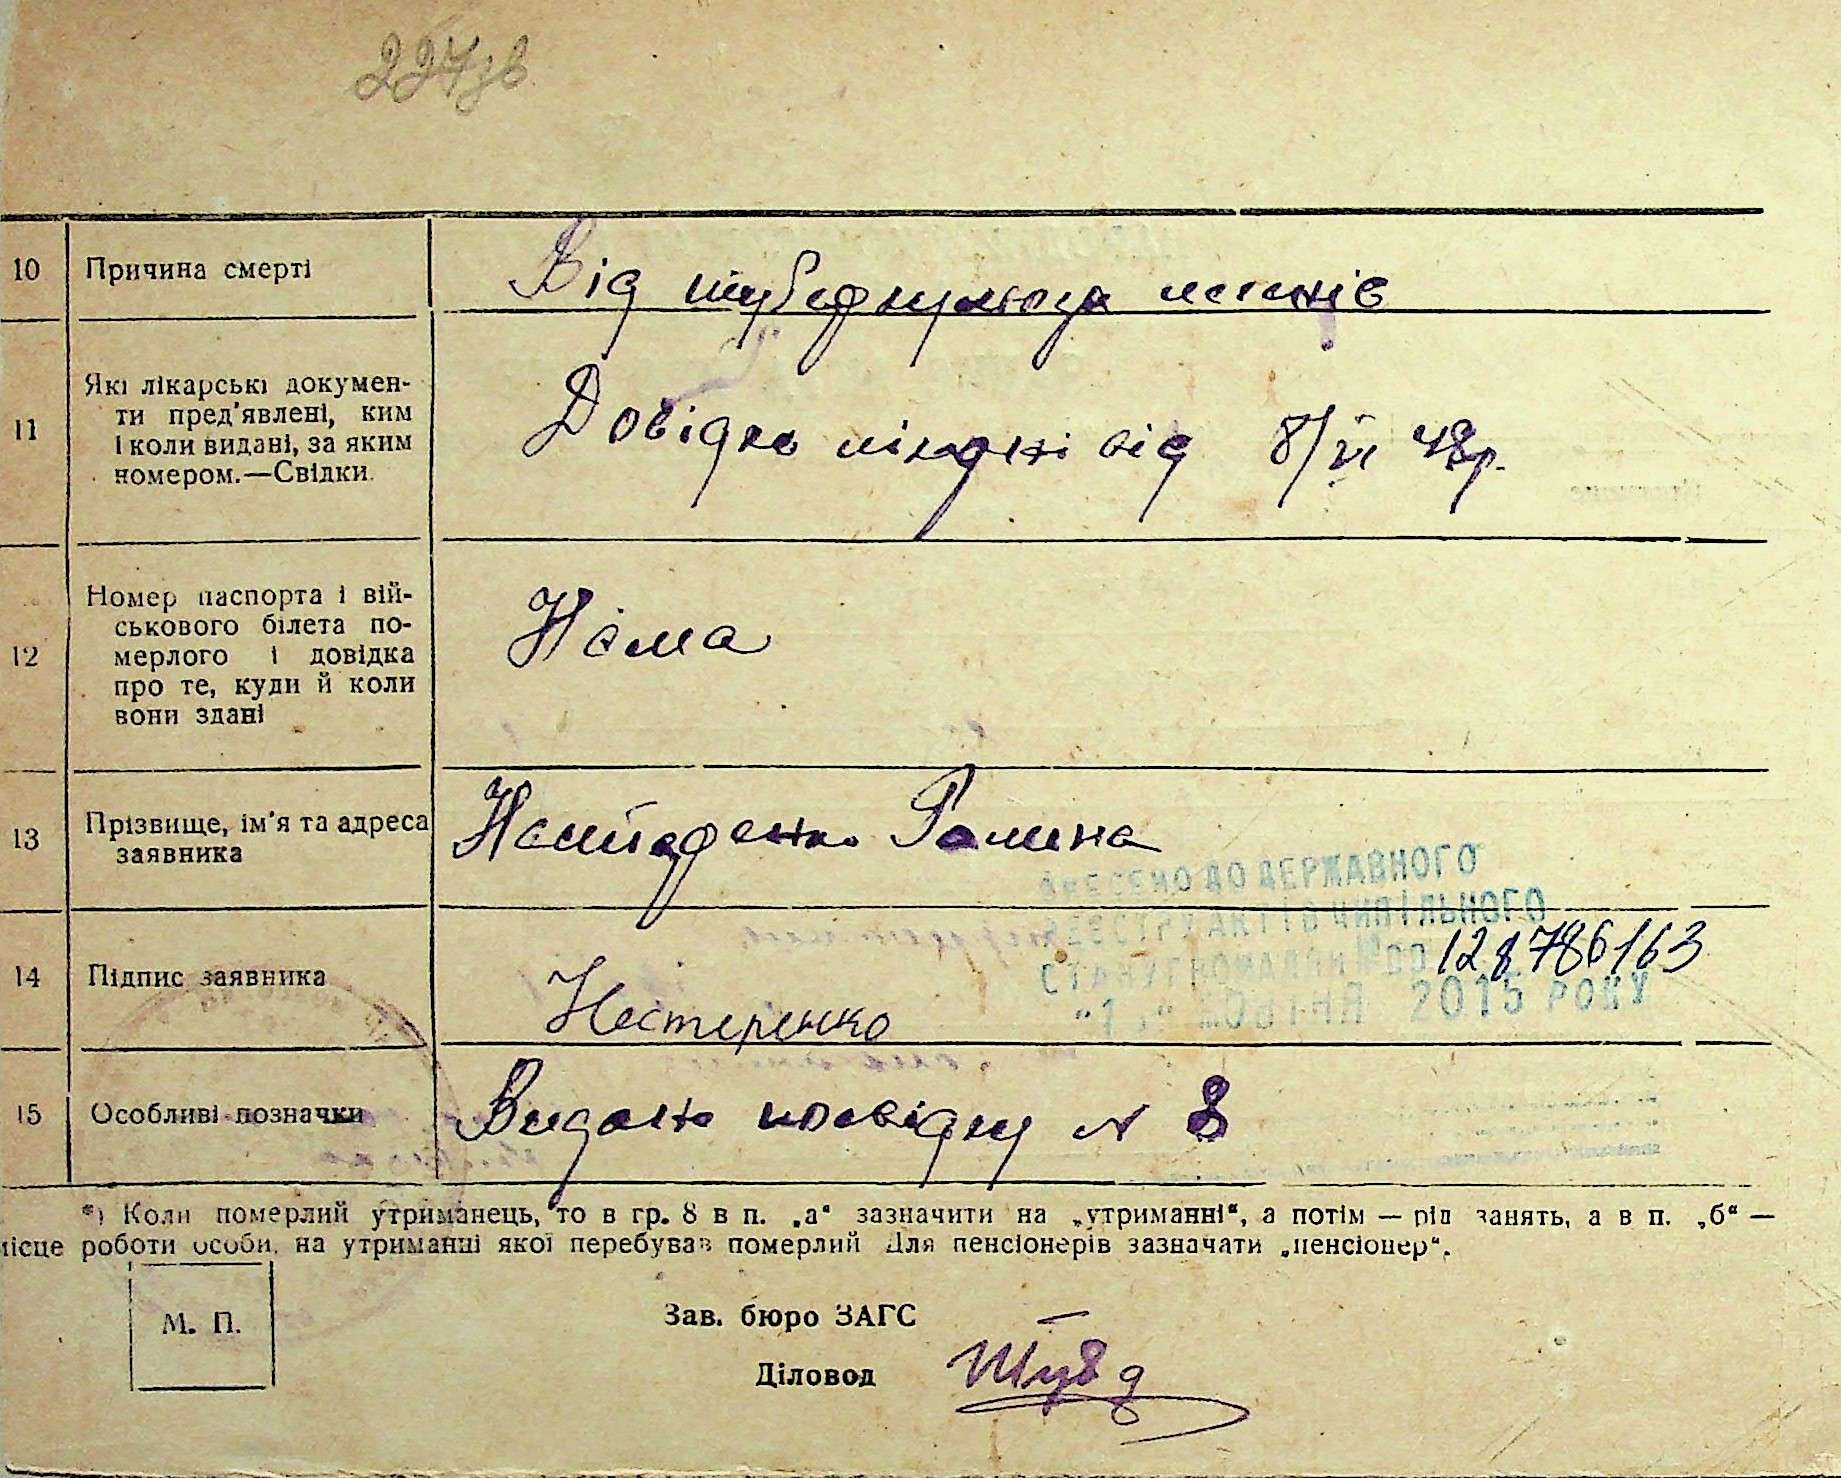 227зв
10 Причина смерті Від туберкульоза легенів
11 Які лікарські докумен-
ти пред'явлені, ким
і коли видані, за яким
номером.—Свідки.
Довідка лікарні від 8/VI 48р.
12 Номер паспорта і вій-
ськового білета по-
мерлого і довідка
про те, куди й коли
вони здані
Нема
13 Прізвище, ім'я та адреса
заявника
Галина
ВНЕСЕНО ДО ДЕРЖАВНОГО
РЕЄСТРУ АКТІВ ЦИВІЛЬНОГО
СТАНУ ГРОМАДЯН №00128786163
"1" ЖОВТНЯ 2015 РОКУ
14 Підпис заявника Нестеренко
15 Особливі позначки Видано посвідку N 8
*) Коли померлий утриманець, то в гр. 8 в п. „а“ зазначити на „утриманні“, а потім — рід занять, а в п. „б“ —
місце роботи особи, на утриманні якої перебував померлий Для пенсіонерів зазначати „пенсіонер“.
М. П.
Зав. бюро ЗАГС
Діловод